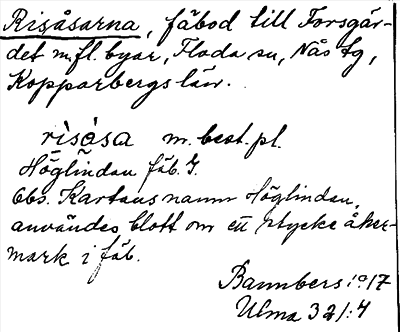 Risåsarna, fäbod till Forsgär-
det m.fl. byar, Floda sn, Nås tg,
Kopparbergs län.
rìsåsa m. best. pl.
Höglindan fäb. G.
Obs. Kartans namn Höglindan,
användes blott om ett stycke åker-
mark i fäb.
Bannbers 1917
Ulma 321:4